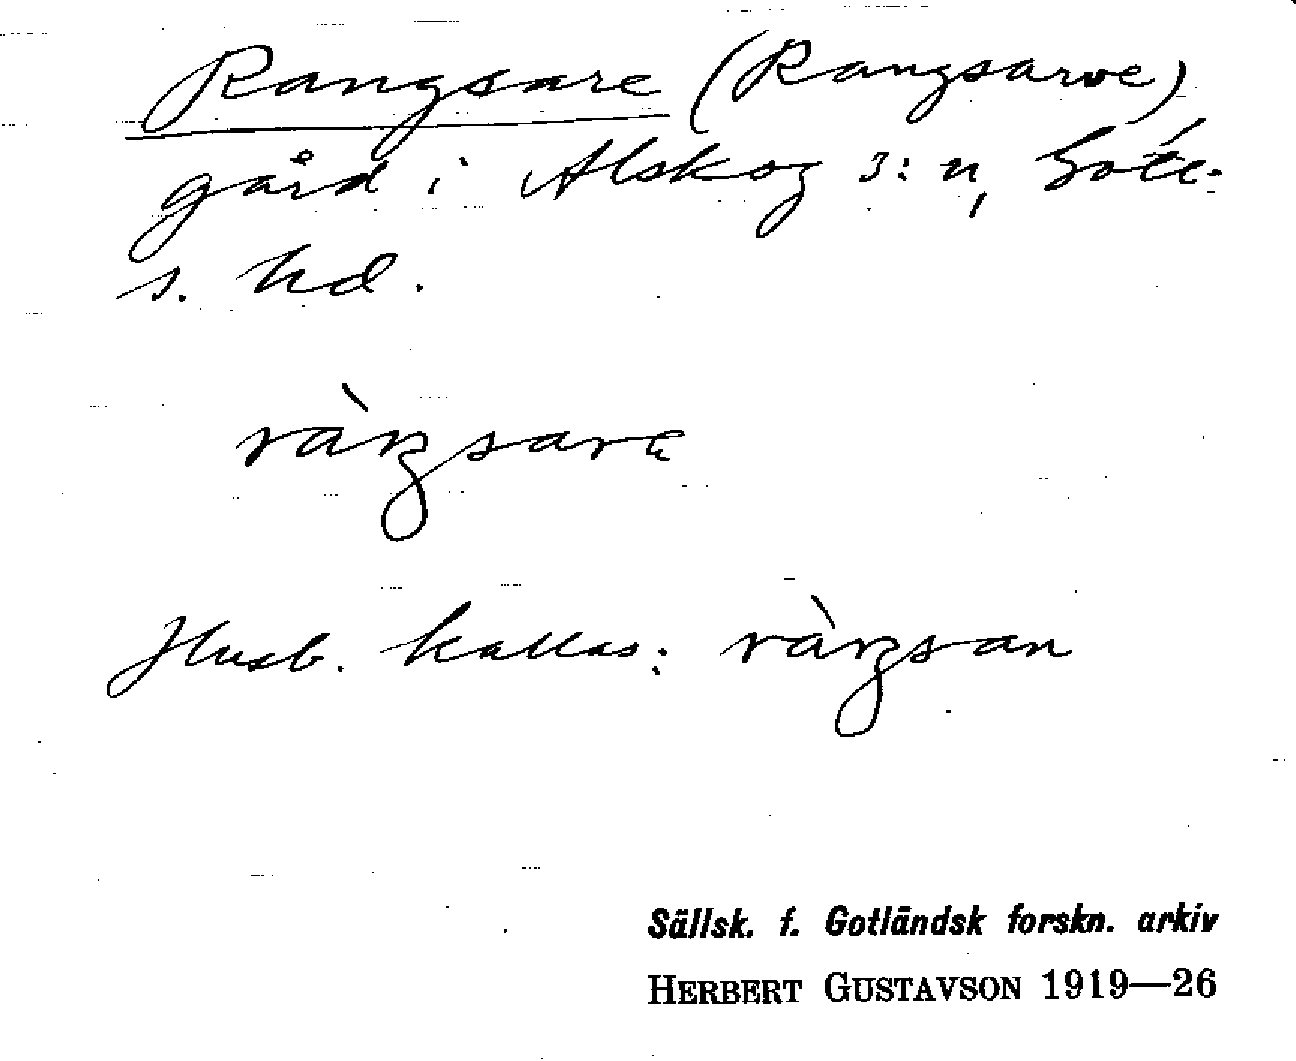 Rangsare (Rangsarve)
gård i Alskog s:n, Gote-
s. hd.
ràŋsarɛ
Husb. kallas: ràŋsan
Sällsk. f. Gotländsk forskn. arkiv
HERBERT GUSTAVSON 1919—26